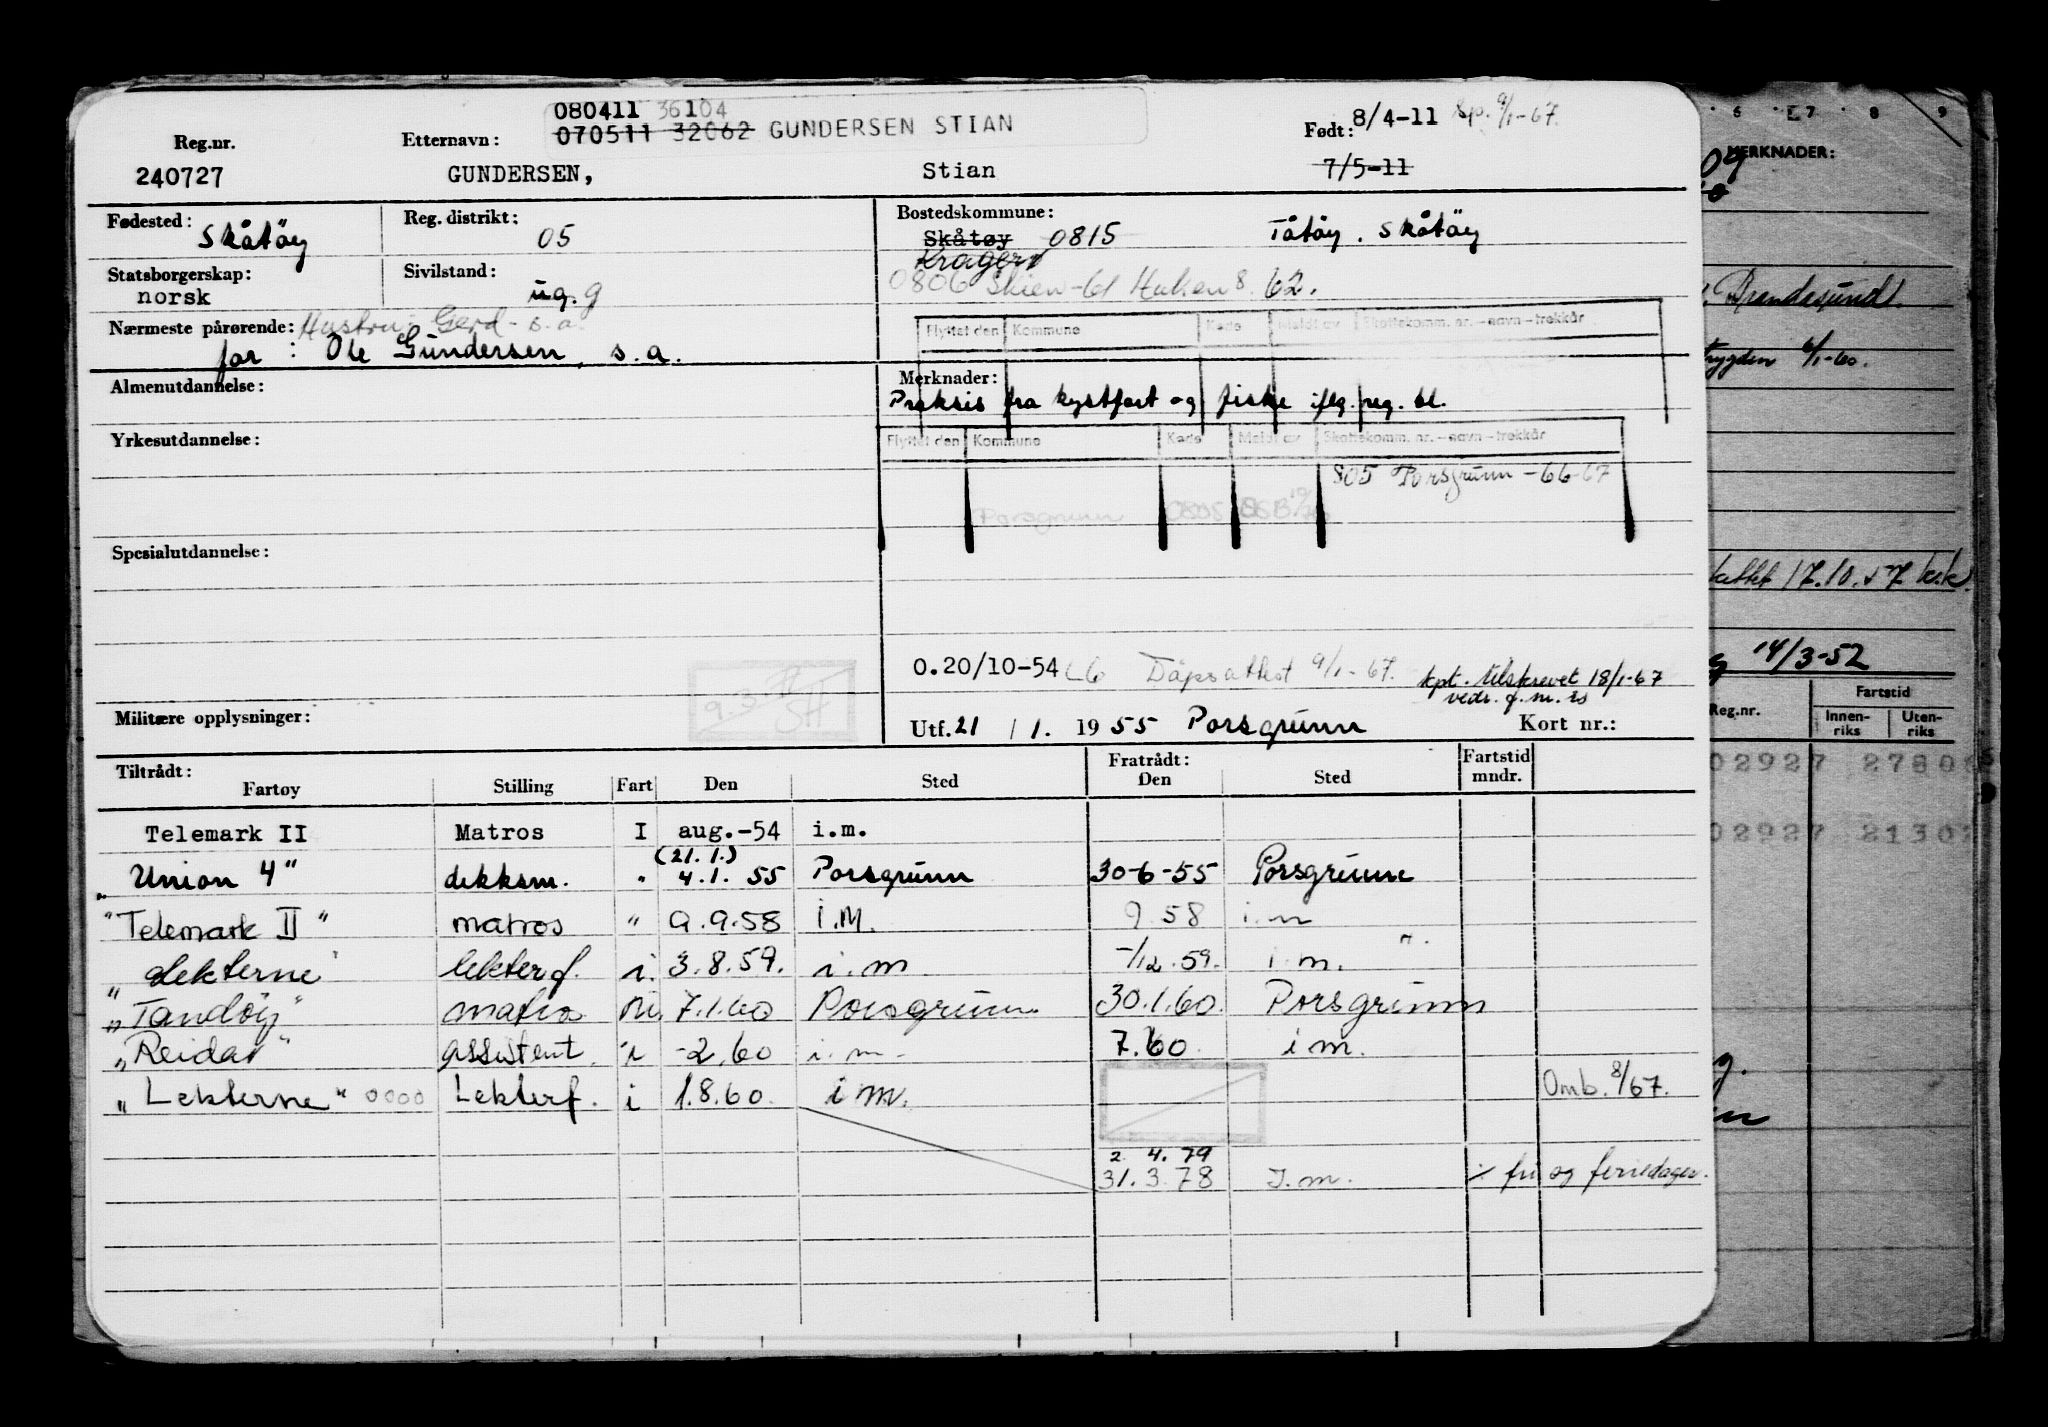 080411 36104
070511 32062 GUNDERSEN STIAN
Reg.nr. Etternavn: Født: 8/4-11 9/1-67.
240727 GUNDERSEN, Stian 7/5-11
Fødested: Skåtöy Reg. distrikt: 05 Bostedskommune:
Skåtøy 0815 Tåtöy. Skåtöy
Kragerø
Statsborgerskap: norsk Sivilstand: ug. g
0806 Skien -61 8. 62.
Nærmeste pårørende: Hustru: Gerd - s.a.
far: Ole Gundersen, s.a.
Flyttet den Kommune Kode Meldt av Skattekomm. nr. - navn - trekkår
Almenutdannelse:
Merknader:
Praksis fra kystfart og fiske iflg. reg. bl.
Yrkesutdannelse:
Flyttet den Kommune Kode Meldt av Skattekomm. nr. - navn - trekkår
805 Porsgrunn -66-67
Porsgrunn 0805
Spesialutdannelse:
O.20/10-54 Dåpsattest 9/1-67. kpt. tilskrevet 18/1-67
vedr. g.m. is
Militære opplysninger:
Utf. 21 / 1. 19 55 Porsgrunn Kort nr.:
Tiltrådt: Fratrådt: Fartstid mndr.
Fartøy Stilling Fart Den Sted Den Sted
Telemark II Matros I aug.-54 i.m.
(21. 1.)
"Union 4" dekksm. " 4.1. 55 Porsgrunn 30-6-55 Porsgrunn
"Telemark II" matros " 9.9.58 i.M. 9.58 i.m
"Lekterne" lekterf. i. 3.8.59. i.m -/12.59. i.m. "
"Tandöy" matros 7.1.60 Porsgrunn 30.1.60. Porsgrunn
"Reidar" assistent. i -2.60 i.m. 7.60. i m.
"Lekterne" 0000 Lekterf. i 1.8.60. i m. Omb. 8/67.
2. 4. 79
31.3.78 I.m. ÷ fri og feriedager.
9.3. SH
6 7 8 9
MERKNADER:
Brandasund.
trygden 6/1-60.
17.10.57 k.k.
14/3-52
Reg.nr. Fartstid
Innenriks Utenriks
02927 2780
02927 2130